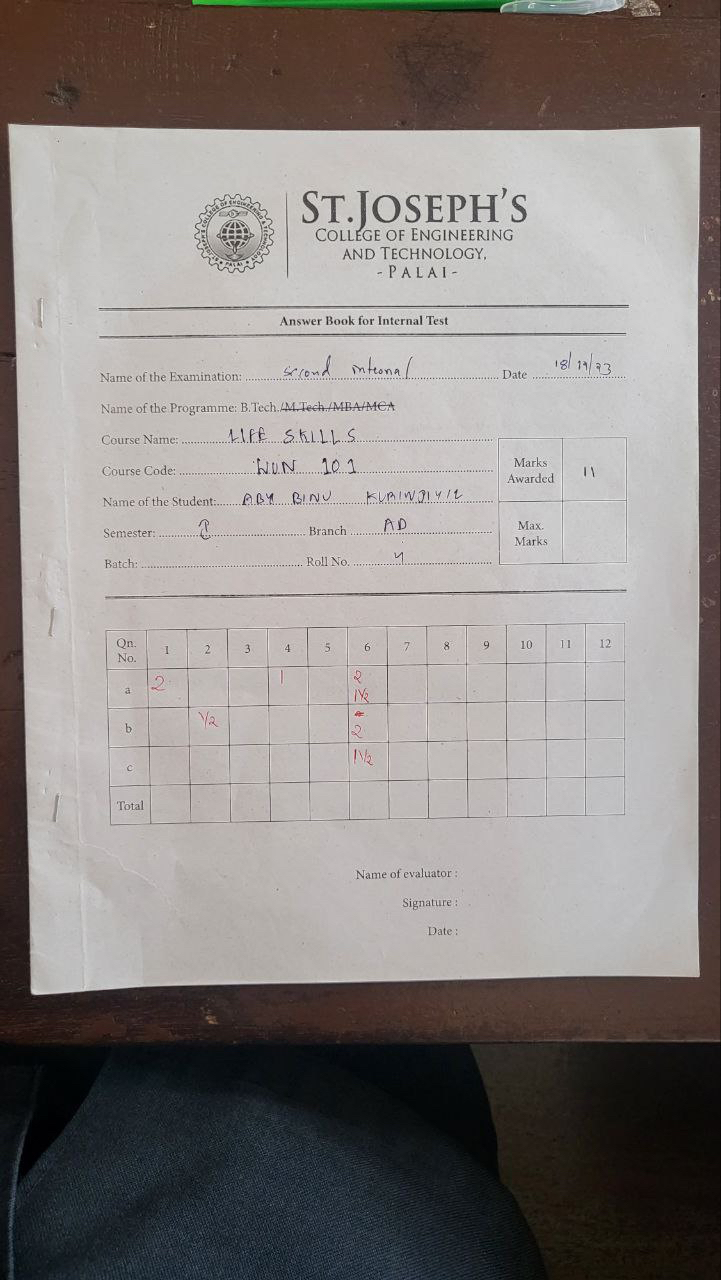 ST.JOSEPH'S
COLLEGE OF ENGINEERING
AND TECHNOLOGY,
- PALAI -
Answer Book for Internal Test
Name of the Examination: second internal Date 18/
Name of the Programme: B.Tech./M.Tech./MBA/MCA
Course Name: LIFE SKILLS
Course Code: HUN 101
Marks Awarded 11
Name of the Student: ABY BINU
Semester: Branch AD
Max. Marks
Batch: Roll No. 4
Qn. No. 1 2 3 4 5 6 7 8 9 10 11 12
a 2 1 2 1½
b ½ 2
c 1½
Total
Name of evaluator :
Signature :
Date :